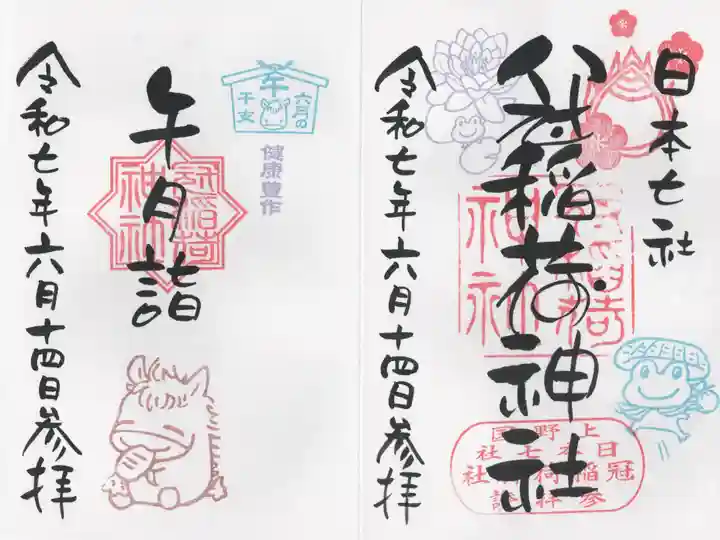 日本七社
冠稲荷神社
令和七年六月十四日参拝
上野国
日本七社
冠稲荷神社
六月の
午
干支
健康豊作
午月詣
令和七年六月十四日参拝